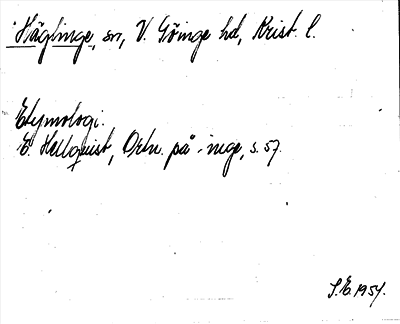 Häglinge, sn, V. Göinge hd, Krist. l.
Etymologi.
E. Hellquist, Ortn. på -inge, s. 57.
S.E. 1954.